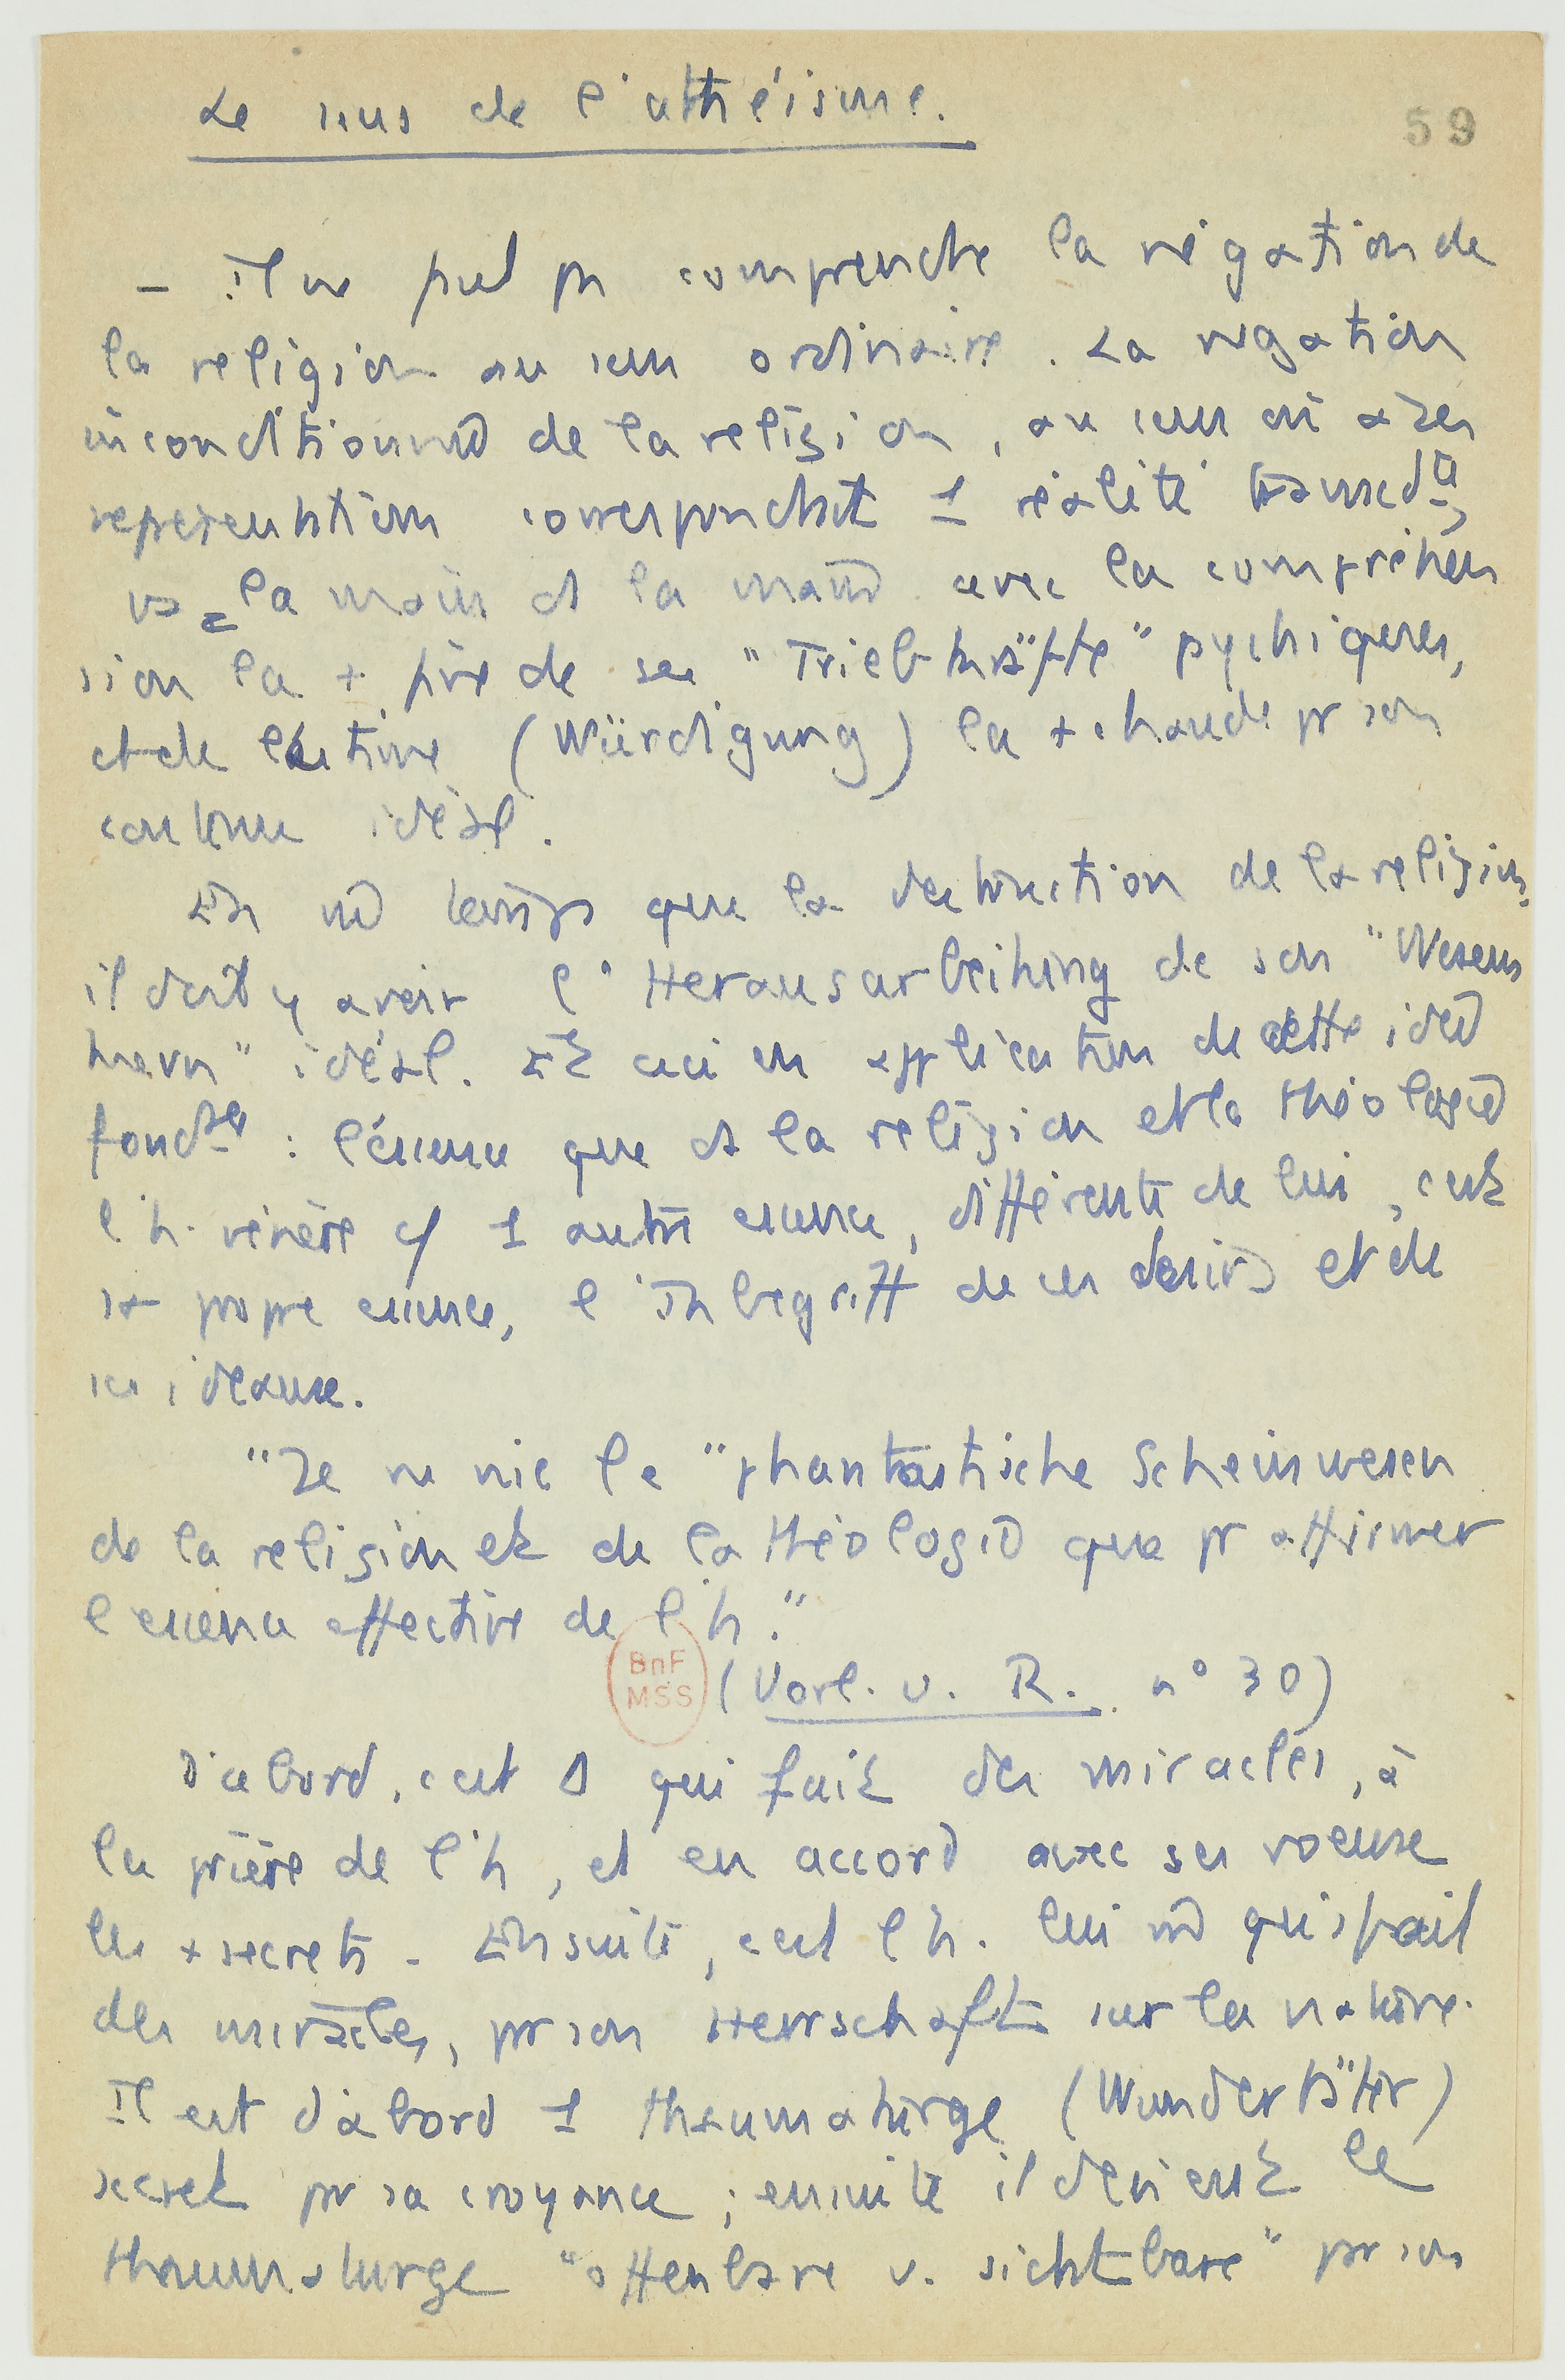 Le sens de l'athéisme.
59
- Il ne faut pas comprendre la négation de
la religion au sens ordinaire. La négation
inconditionnée de la religion, au sens où à ses
représentations correspondrait 1 réalité
va la main ds la main avec la compréhen
sion la + pure de ses "Triebkräfte" psychiques,
et de l'estime (Würdigung) la + chaude pr son
contenu idéal.
En m̂ temps que la destruction de la religion,
il doit y avoir l'Herausarbeitung de son "Wesens
kern" idéal. Et ceci en application de cette idée
fondale : l'essence que ds la religion et la théologie
l'h. vénère c/ 1 autre essence, différente de lui, c'est
sa propre essence, l'Inbegriff de ses désirs et de
ses idéaux.
"Je ne nie le "phantastische Scheinwesen
de la religion et de la théologie que pr affirmer
l'essence effective de l'h."
BnF
MSS
(Vorl. u. R. n° 30)
D'abord, c'est D qui fait des miracles, à
la prière de l'h, et en accord avec ses voeux
les + secrets. Ensuite, c'est l'h. lui m̂ qui fait
des miracles, pr son Herrschaft sur la nature.
Il est d'abord 1 thaumaturge (Wundertäter)
secret pr sa croyance ; ensuite il devient le
thaumaturge "offenbare u. sichtbare" pr son